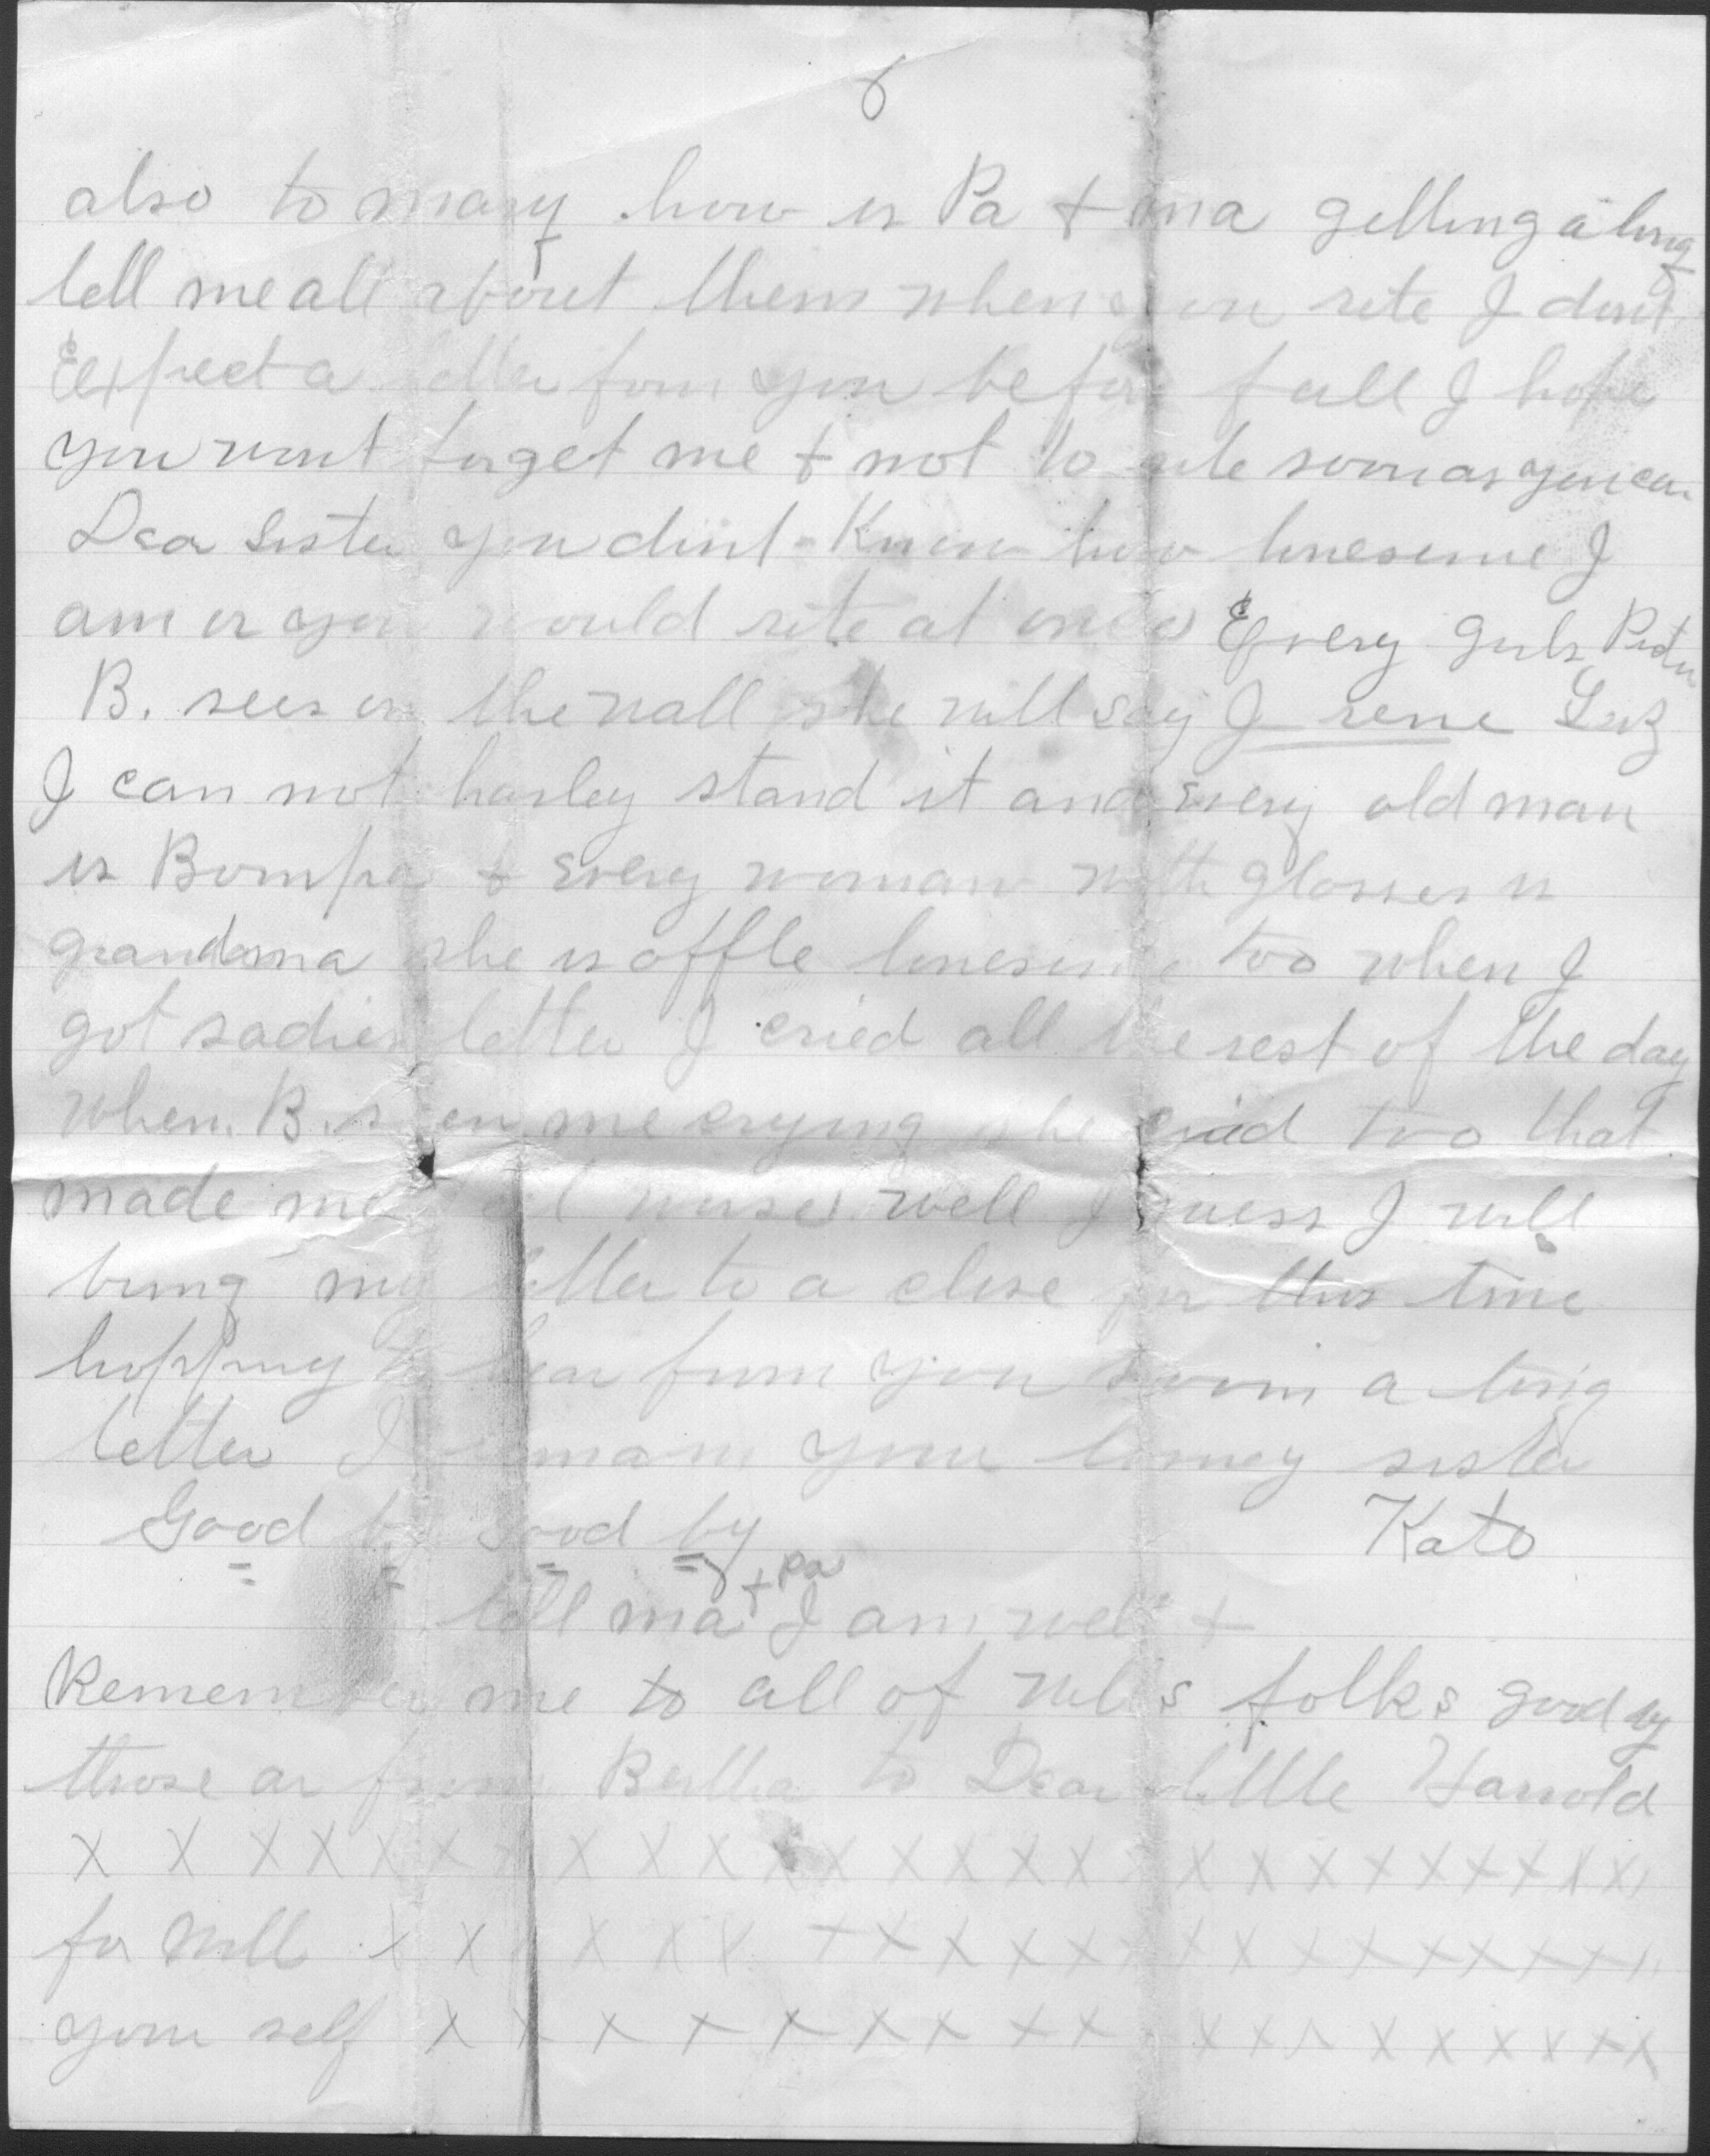 8
also to mary how is Pa + ma getting along
tell me all about them when you rite I dont
Expect a letter from you before fall I hope
you wont forget me + not to rite soon as you can
Dear Sister you dint Know how lonesome I
am or you would rite at once Every girls Pictu
B. sees on the wall she will say I rene
I can not harley stand it and Every old man
is Bompa + Every woman with glasses is
grandma she is offle lonesome too when I
got sadies letter I cried all the rest of the day
when B. seen me crying she cried too that
made me feel worse well I guess I will
bring my letter to a close for this time
hopping to hear from you soon a long
letter I remain your loving sister
Good by Good by Kate
tell ma + pa I am well +
Remember me to all of will's folks good by
those ar from Bertha to Dear little Harrold
X X X X X X X X X X X X X X X X X X X X X X X X X X
for Will X X X X X X X X X X X X X X X X X X X X X
your self X X X X X X X X X X X X X X X X X X